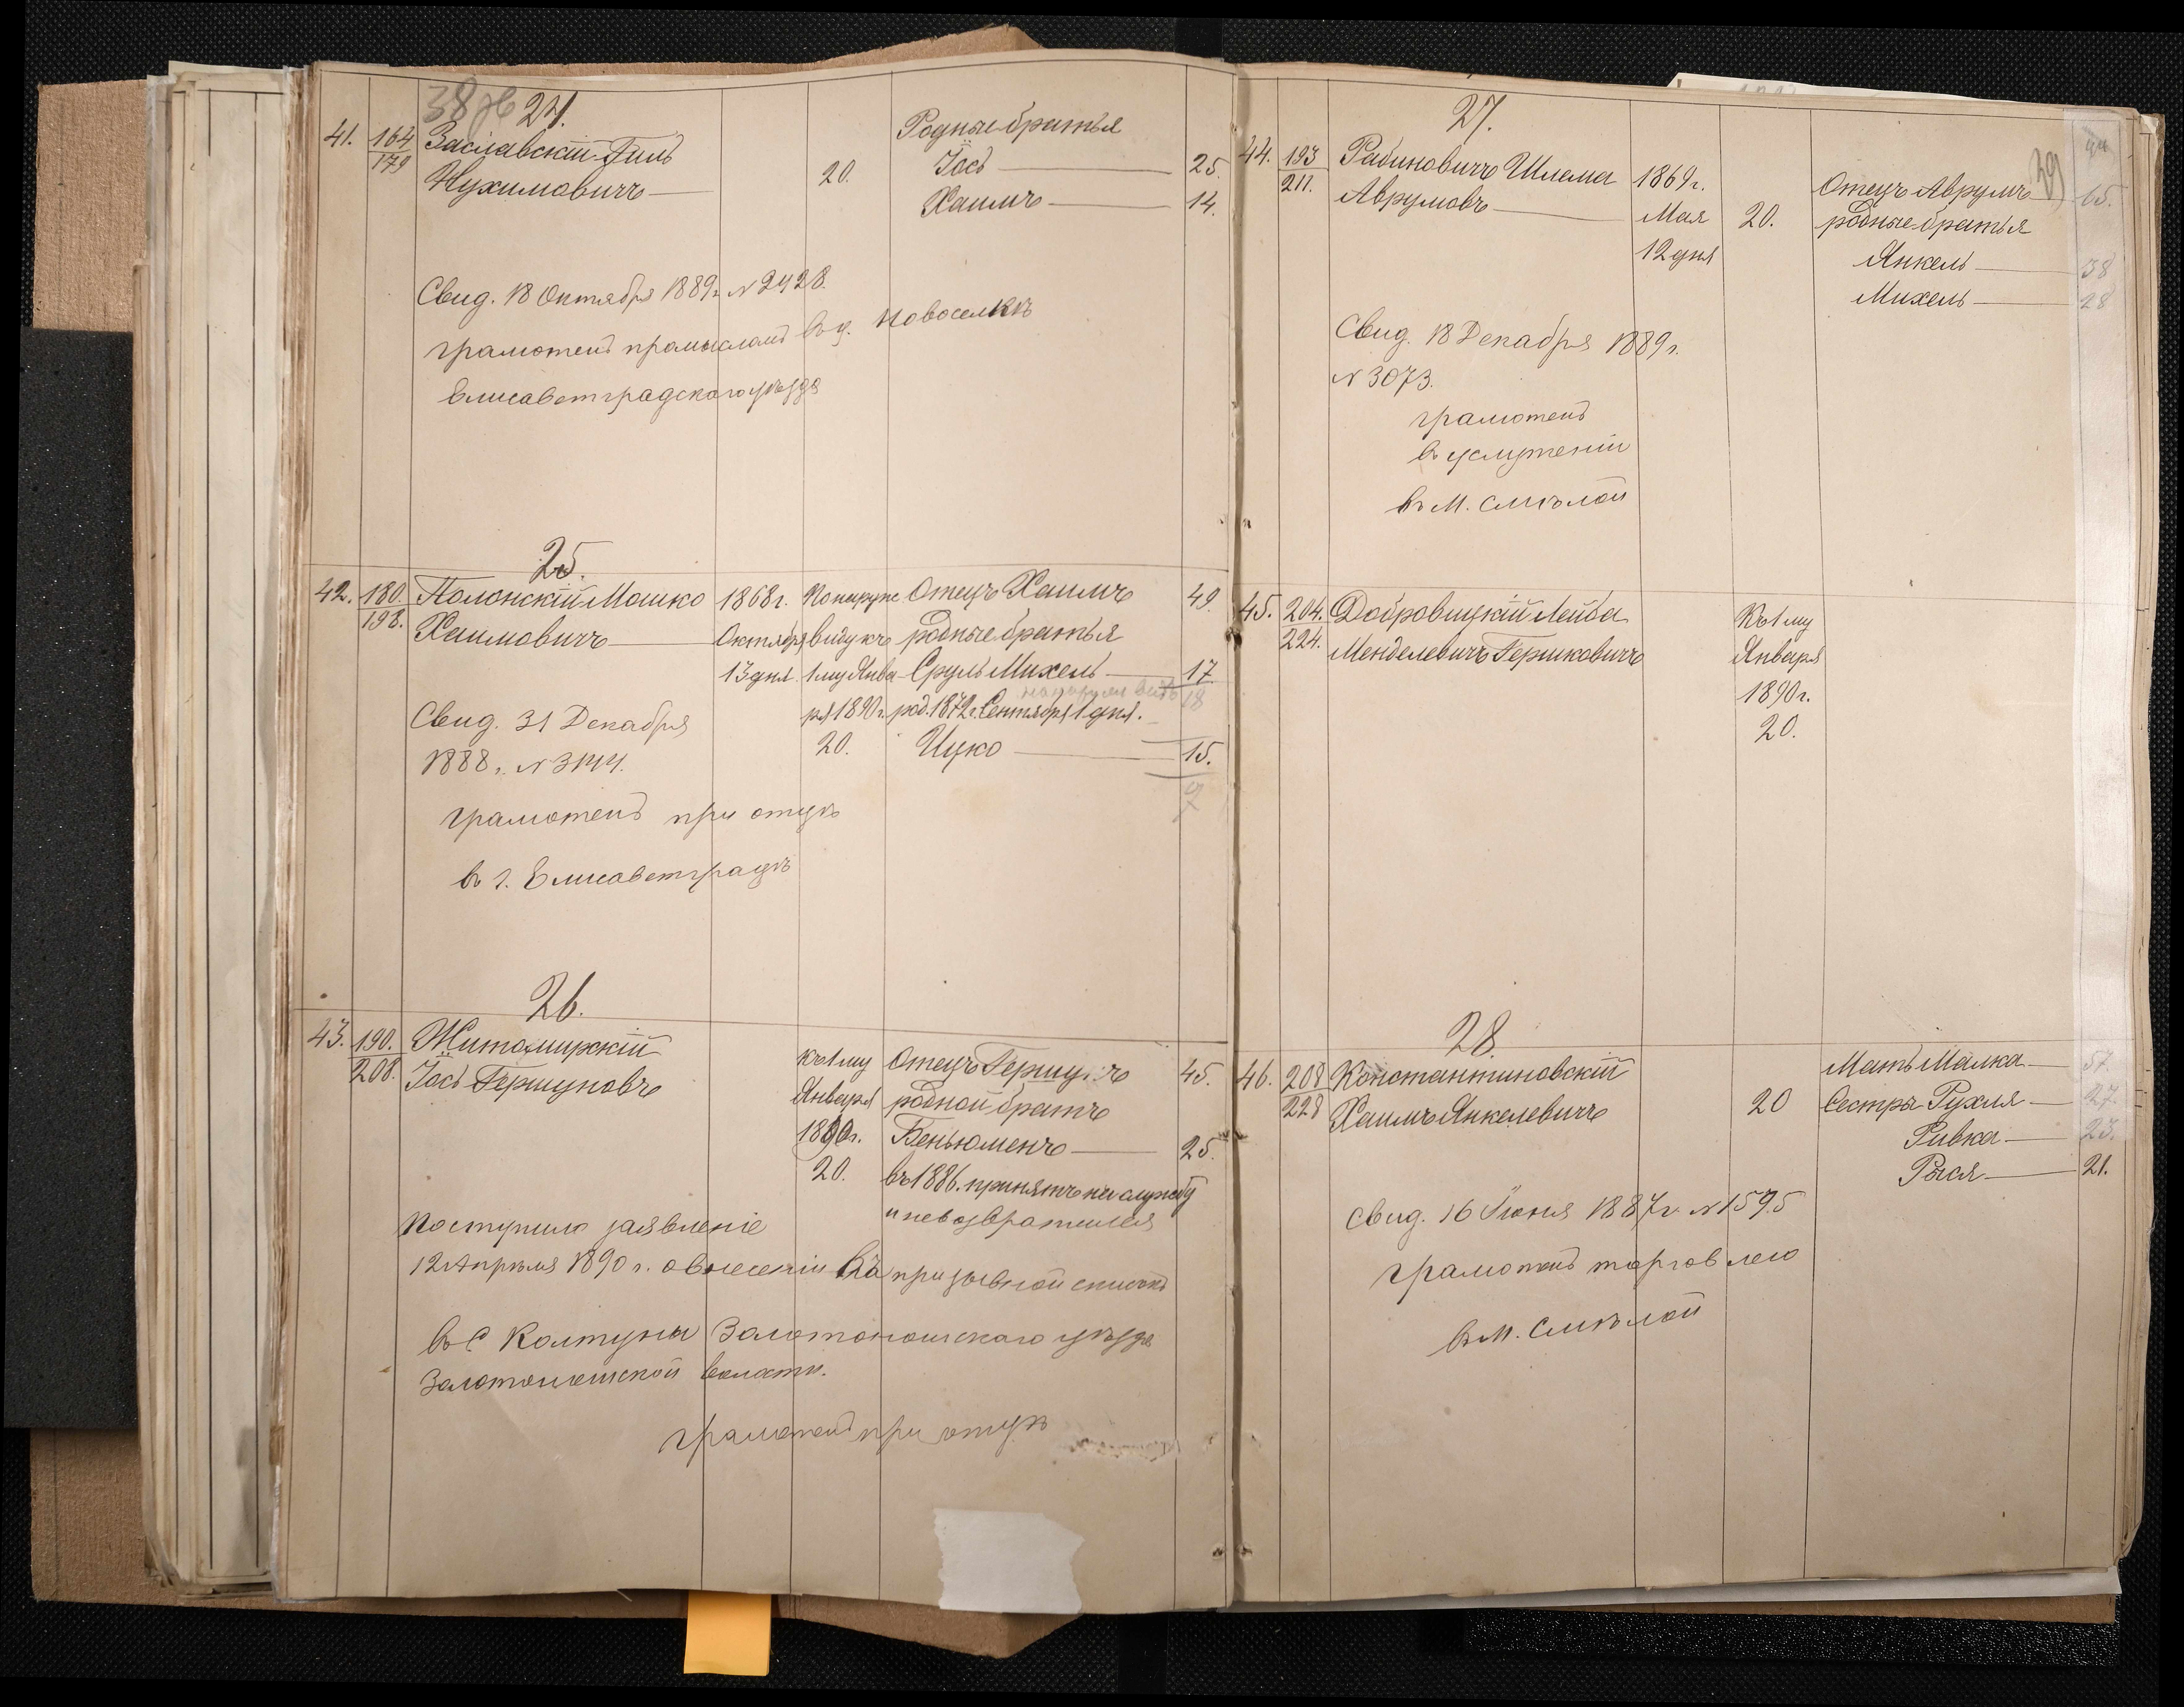 38 об 24.
41. 164 Заславскій Гиль Родные братья
179 Нухимовичъ 20. Іось 25.
Хаимъ 14.
Свид. 18 Октября 1889 г. № 2428.
грамотенъ промысломъ въ д. Новоселкѣ
Елисаветградскаго уѣзда
25.
42. 180. Полонскій Мошко 1868 г. По наружн Отецъ Хаимъ 49.
198. Хаимовичъ Октября виду къ родные братья
13 дня. 1 му Янва Сруль Михель 17.
18
Свид. 31 Декабря ря 1890 г. род. 1872 г. Сентября 1 дня.
1888 г. № 3144. 20. Ицко 15.
грамотенъ при отцѣ
въ г. Елисаветградѣ
26.
43. 190. Житомирскій къ 1 му Отецъ 45.
208. Іось Гершуновъ Января родной братъ
1890 г. Беньюменъ 25.
20. въ 1886. принятъ на службу
и невозвратился
Поступило заявленіе
12 Апрѣля 1890 г. о внесеніи въ призывной списокъ
въ с Колтуны Золотоношскаго уѣзда
Золотоношской волости.
грамотенъ при отцѣ
27.
44
39
44. 193 Рабиновичъ Шлема 1869 г. Отецъ Аврумъ 65.
211. Аврумовъ Мая 20. родные братья
12 дня Янкель 38
Михель 28
Свид. 18 Декабря 1889 г.
№ 3073.
грамотенъ
въ услуженіи
въ М. Смѣлой
45. 204. Добровицкій Лейба Къ 1 му
224. Менделевичъ Гершковичъ Января
1890 г.
20.
28.
46. 208 Константиновскій Мать Малка 57.
228 Хаимъ Янкелевичъ 20 Сестры Рухля 27.
Ривка 23.
Рыся 21.
Свид. 16 Іюня 1887 г. № 1595
грамотенъ торговлею
въ М. Смѣлой